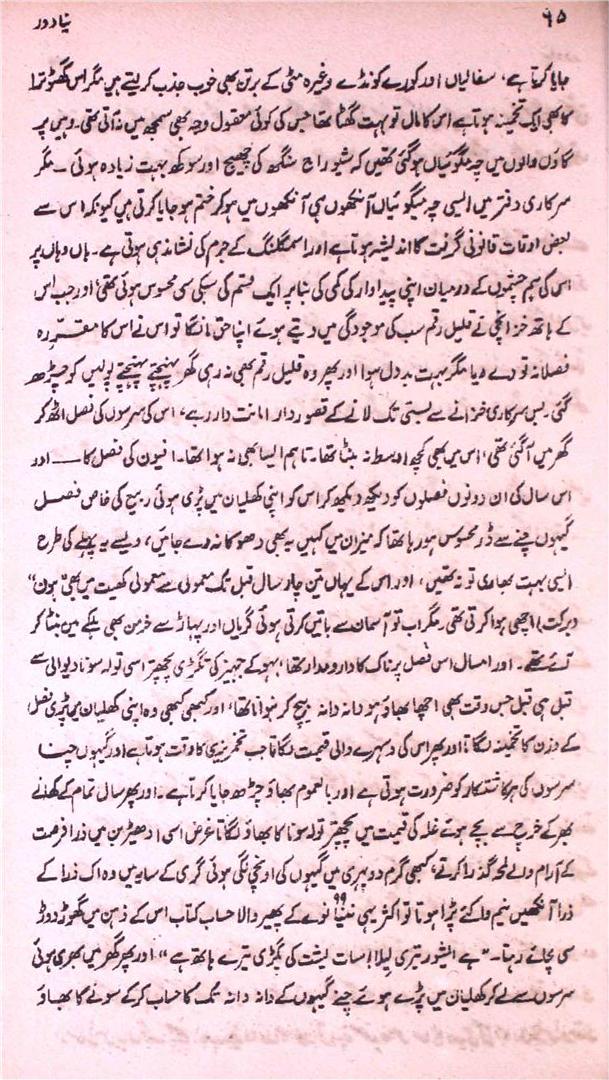 ۶۵
نیا دور
جایا کرتا ہے، سفالیاں اور کورے کونڈے وغیرہ مٹی کے برتن بھی خوب جذب کر لیتے ہیں مگر اس گھٹوترا
کا بھی ایک تخمینہ ہوتا ہے اس کا مال تو بہت گھٹا تھا جس کی کوئی معقول وجہ بھی سمجھ میں نہ آتی تھی۔ وہیں پر
گاؤں والوں میں چہ مگوئیاں ہو گئی تھیں کہ شیو راج سنگھ کی چھیج اور سوکھ بہت زیادہ ہوئی۔ مگر
سرکاری دفتر میں ایسی چہ میگوئیاں آنکھوں ہی آنکھوں میں ہو کر ختم ہو جایا کرتی ہیں کیونکہ اس سے
بعض اوقات قانونی گرفت کا اندیشہ ہوتا ہے اور اسمگلنگ کے جرم کی نشاندہی ہوتی ہے۔ ہاں وہاں پر
اس کی ہم چشموں کے درمیان اپنی پیداوار کی کمی کی بنا پر ایک قسم کی سبکی سی محسوس ہوئی تھی اور جب اس
کے ہاتھ خزانچی نے قلیل رقم سب کی موجودگی میں دیتے ہوئے اپنا حق مانگا تو اس نے اس کا مقررہ
فصلانہ تو دے دیا مگر بہت بد دل ہوا اور پھر وہ قلیل رقم بھی نہ رہی گھر پہنچتے پہنچتے پولیس کو چڑھ
گئی۔ بس سرکاری خزانے سے بستی تک لانے کے قصور دار امانت دار رہے، اس کی سرسوں کی فصل اٹھ کر
گھر میں آ گئی تھی، اس میں بھی کچھ اوسط نہ بنتا تھا۔ تاہم ایسا بھی نہ ہوا تھا۔ افیون کی فصل کا —— اور
اس سال کی ان دونوں فصلوں کو دیکھ دیکھ کر اس کو اپنی کھلیان میں پڑی ہوئی ربیع کی خاص فصل
گیہوں چنے سے ڈر محسوس ہو رہا تھا کہ میزان میں کہیں یہ بھی دھوکا نہ دے جائیں، ویسے یہ پہلے کی طرح
ایسی بہت بھاری تو نہ تھیں، اور اس کے یہاں تین چار سال قبل تک معمولی سے معمولی کھیت میں بھی "ہون"
(برکت) اچھی ہوا کرتی تھی۔ مگر اب تو آسمان سے باتیں کرتی ہوئی گریاں اور پہاڑ سے خرمن بھی ہلکے من بتا کر
آئے تھے۔ اور امسال اس فصل پر ناک کا دارومدار تھا، بہو کے جہیز کی تگڑی پچھتر اسی تولہ سونا دیوالی سے
قبل ہی قبل جس وقت بھی اچھا بھاؤ ہو دانہ دانہ بیچ کر بنوانا تھا، اور کبھی کبھی وہ اپنی کھلیان میں پڑی فصل
کے وزن کا تخمینہ لگاتا اور پھر اس کی دسہرے والی قیمت لگاتا جب تخم ریزی کا وقت ہوتا ہے اور گیہوں چنا
سرسوں کی ہر کاشتکار کو ضرورت ہوتی ہے اور بالعموم بھاؤ چڑھ جایا کرتا ہے۔ اور پھر سال تمام کے کھانے
بھر کے خرچ سے بچے ہوئے غلہ کی قیمت میں پچھتر تولہ سونا کا بھاؤ لگاتا غرض اسی ادھیڑبن میں ذرا فرصت
کے آرام والے لمحہ گذرا کرتے، کبھی گرم دوپہری میں گیہوں کی اونچی لگی ہوئی گری کے سایہ میں وہ اک ذرا کے
ذرا آنکھیں نیم وا کئے پڑا ہوتا تو اکثر یہی ننیا نوے ۹۹ کے پھیر والا حساب کتاب اس کے ذہن میں گھوڑ دوڑ
سی مچائے رہتا۔ "ہے ایشور تیری لیلا! سات پشت کی پگڑی تیرے ہاتھ ہے" اور پھر گھر میں بھری ہوئی
سرسوں سے لے کر کھلیان میں پڑے ہوئے چنے گیہوں کے دانہ دانہ تک کا حساب کر کے سونے کا بھاؤ